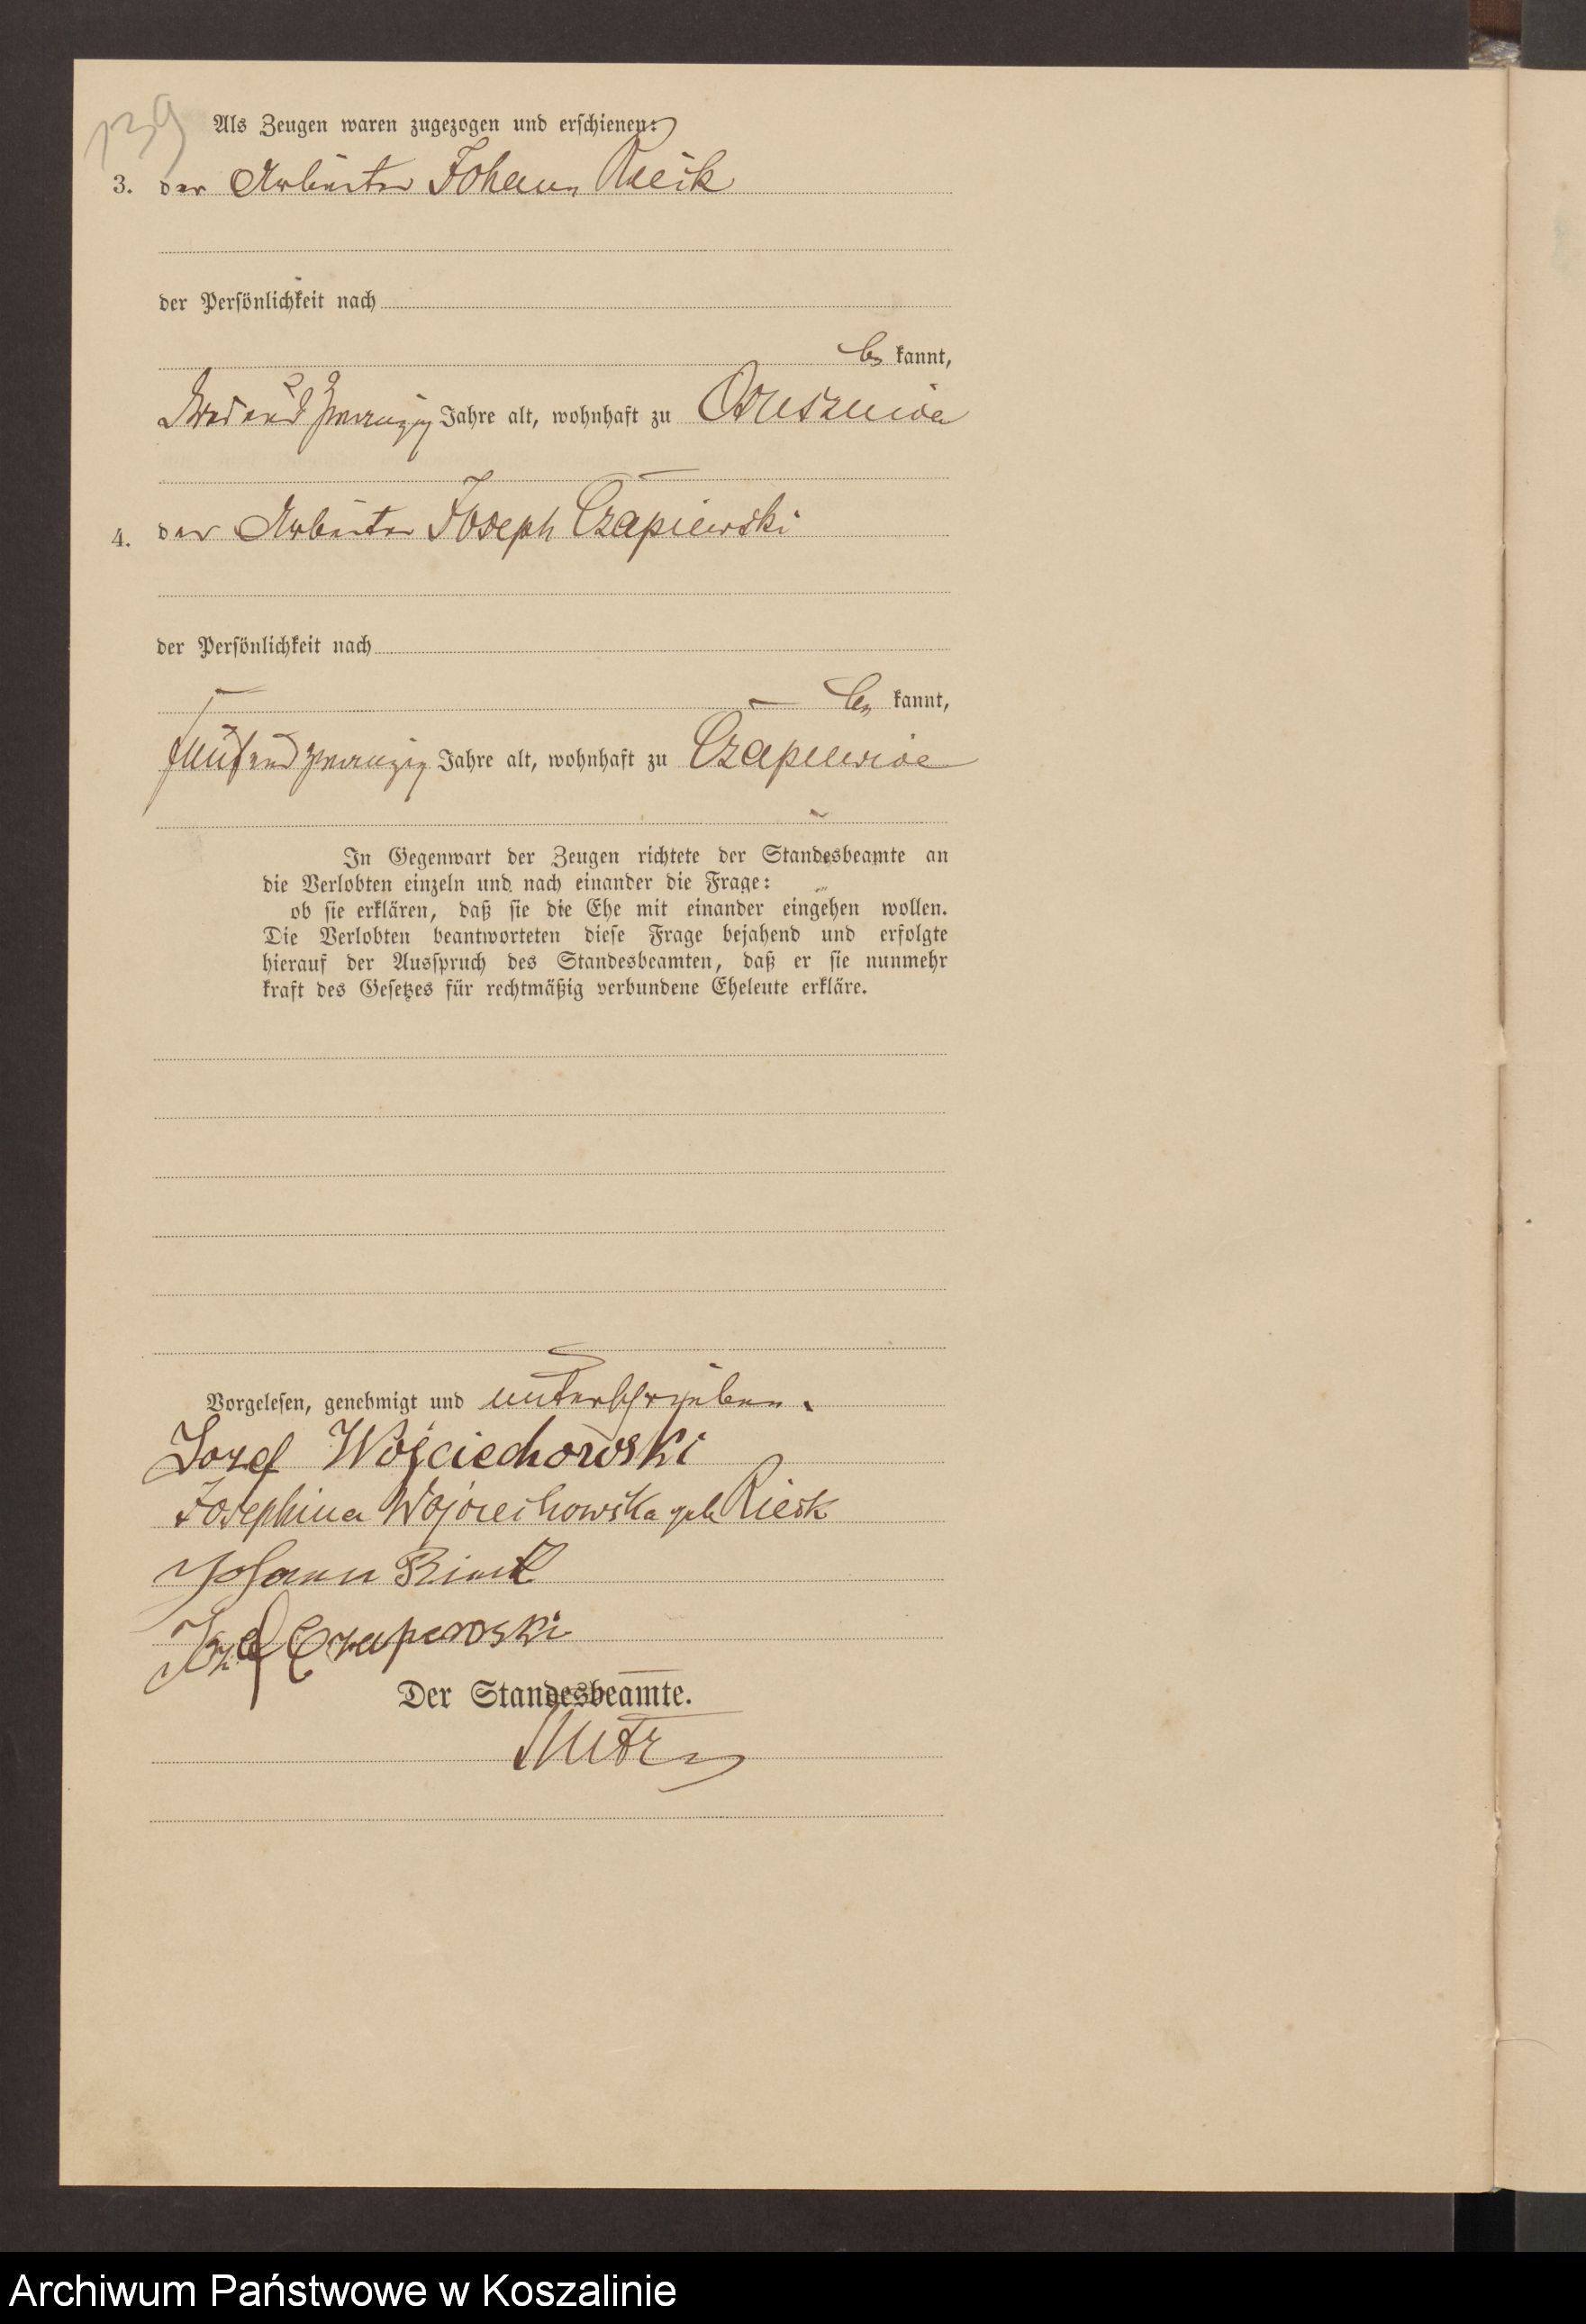 139
Als Zeugen waren zugezogen und erschienen:
3. der Arbeiter Johann Rieck
der Persönlichkeit nach
be kannt,
und zwanzig Jahre alt, wohnhaft zu
4. der Arbeiter Joseph Czapiewski
der Persönlichkeit nach
be kannt,
fünfundzwanzig Jahre alt, wohnhaft zu Czapiewice
In Gegenwart der Zeugen richtete der Standesbeamte an
die Verlobten einzeln und nach einander die Frage:
ob sie erklären, daß sie die Ehe mit einander eingehen wollen.
Die Verlobten beantworteten diese Frage bejahend und erfolgte
hierauf der Ausspruch des Standesbeamten, daß er sie nunmehr
kraft des Gesetzes für rechtmäßig verbundene Eheleute erkläre.
Vorgelesen, genehmigt und unterschrieben.
Jozef Wojciechowski
Josephina Wojciechowska geb Rieck
Johann
Jozef
Der Standesbeamte.
Archiwum Państwowe w Koszalinie